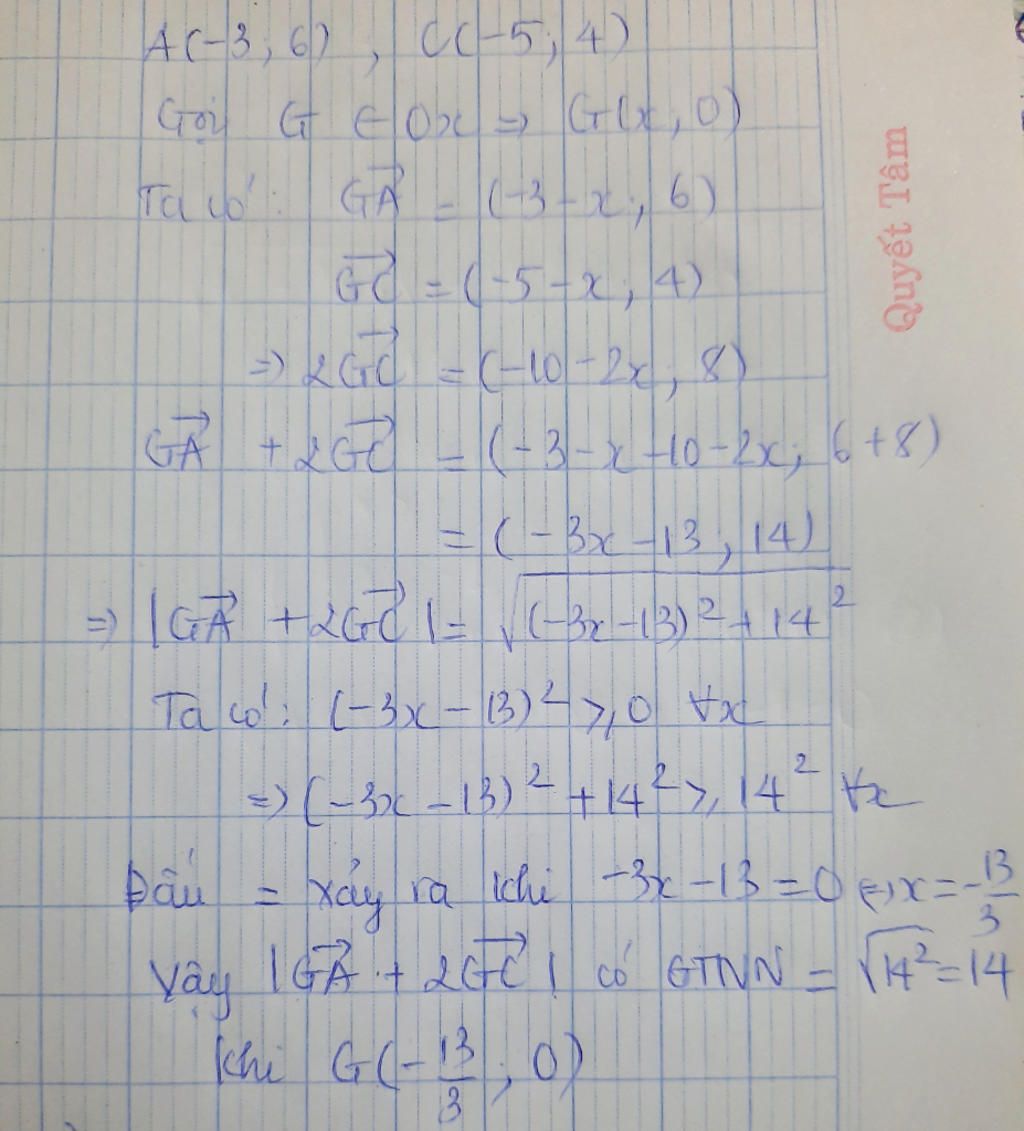 A(-3; 6), C(-5; 4)
Gọi G ∈ Ox ⇒ G(x, 0)
Ta có: \overrightarrow{GA} = (-3 - x; 6)
\overrightarrow{GC} = (-5 - x; 4)
⇒ 2\overrightarrow{GC} = (-10 - 2x; 8)
\overrightarrow{GA} + 2\overrightarrow{GC} = (-3 - x - 10 - 2x; 6 + 8)
= (-3x - 13; 14)
⇒ |\overrightarrow{GA} + 2\overrightarrow{GC}| = \sqrt{(-3x - 13)^2 + 14^2}
Ta có: (-3x - 13)^2 ≥ 0 ∀x
⇒ (-3x - 13)^2 + 14^2 ≥ 14^2 ∀x
Dấu = xảy ra khi -3x - 13 = 0 ⇔ x = -\frac{13}{3}
Vậy |\overrightarrow{GA} + 2\overrightarrow{GC}| có GTNN = \sqrt{14^2} = 14
khi G(-\frac{13}{3}; 0)
Quyết Tâm